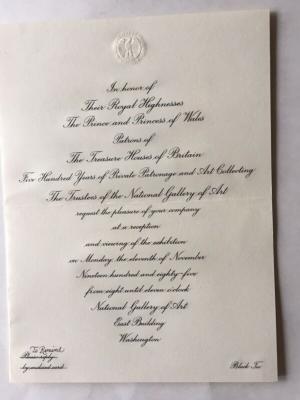 In honor of
Their Royal Highnesses
The Prince and Princess of Wales
Patrons of
The Treasure Houses of Britain
Five Hundred Years of Private Patronage and Art Collecting
The Trustees of the National Gallery of Art
request the pleasure of your company
at a reception
and viewing of the exhibition
on Monday, the eleventh of November
Nineteen hundred and eighty-five
from eight until eleven o'clock
National Gallery of Art
East Building
Washington
To Remind
Please reply
by enclosed card
Black Tie